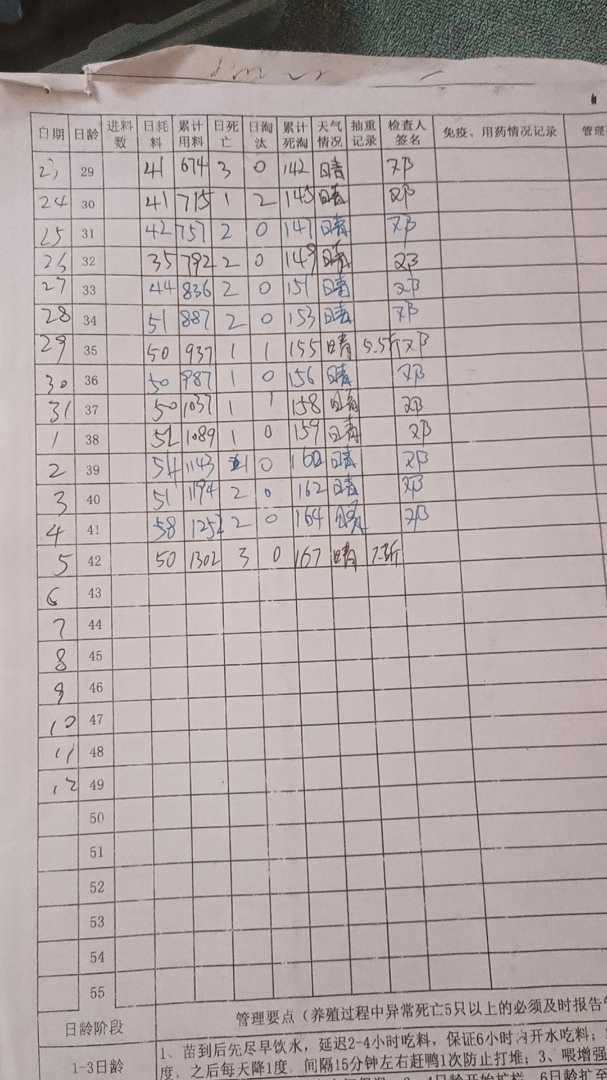 日期 日龄 进料数 日耗料 累计用料 日死亡 日淘汰 累计死淘 天气情况 抽重记录 检查人签名 免疫、用药情况记录 管理
23 29 41 674 3 0 142 晴 邓
24 30 41 715 1 2 145 晴 邓
25 31 42 757 2 0 147 晴 邓
26 32 35 792 2 0 149 晴 邓
27 33 44 836 2 0 151 晴 邓
28 34 51 887 2 0 153 晴 邓
29 35 50 937 1 1 155 晴 5.5斤 邓
30 36 50 987 1 0 156 晴 邓
31 37 50 1037 1 1 158 晴 邓
1 38 52 1089 1 0 159 晴 邓
2 39 54 1143 1 0 160 晴 邓
3 40 51 1194 2 0 162 晴 邓
4 41 58 1252 2 0 164 邓
5 42 50 1302 3 0 167 晴
6 43
7 44
8 45
9 46
10 47
11 48
12 49
50
51
52
53
54
55
日龄阶段 管理要点（养殖过程中异常死亡5只以上的必须及时报告
1-3日龄 1、苗到后先尽早饮水，延迟2-4小时吃料，保证6小时内开水吃料；
度，之后每天降1度，间隔15分钟左右赶鸭1次防止打堆；3、喂增